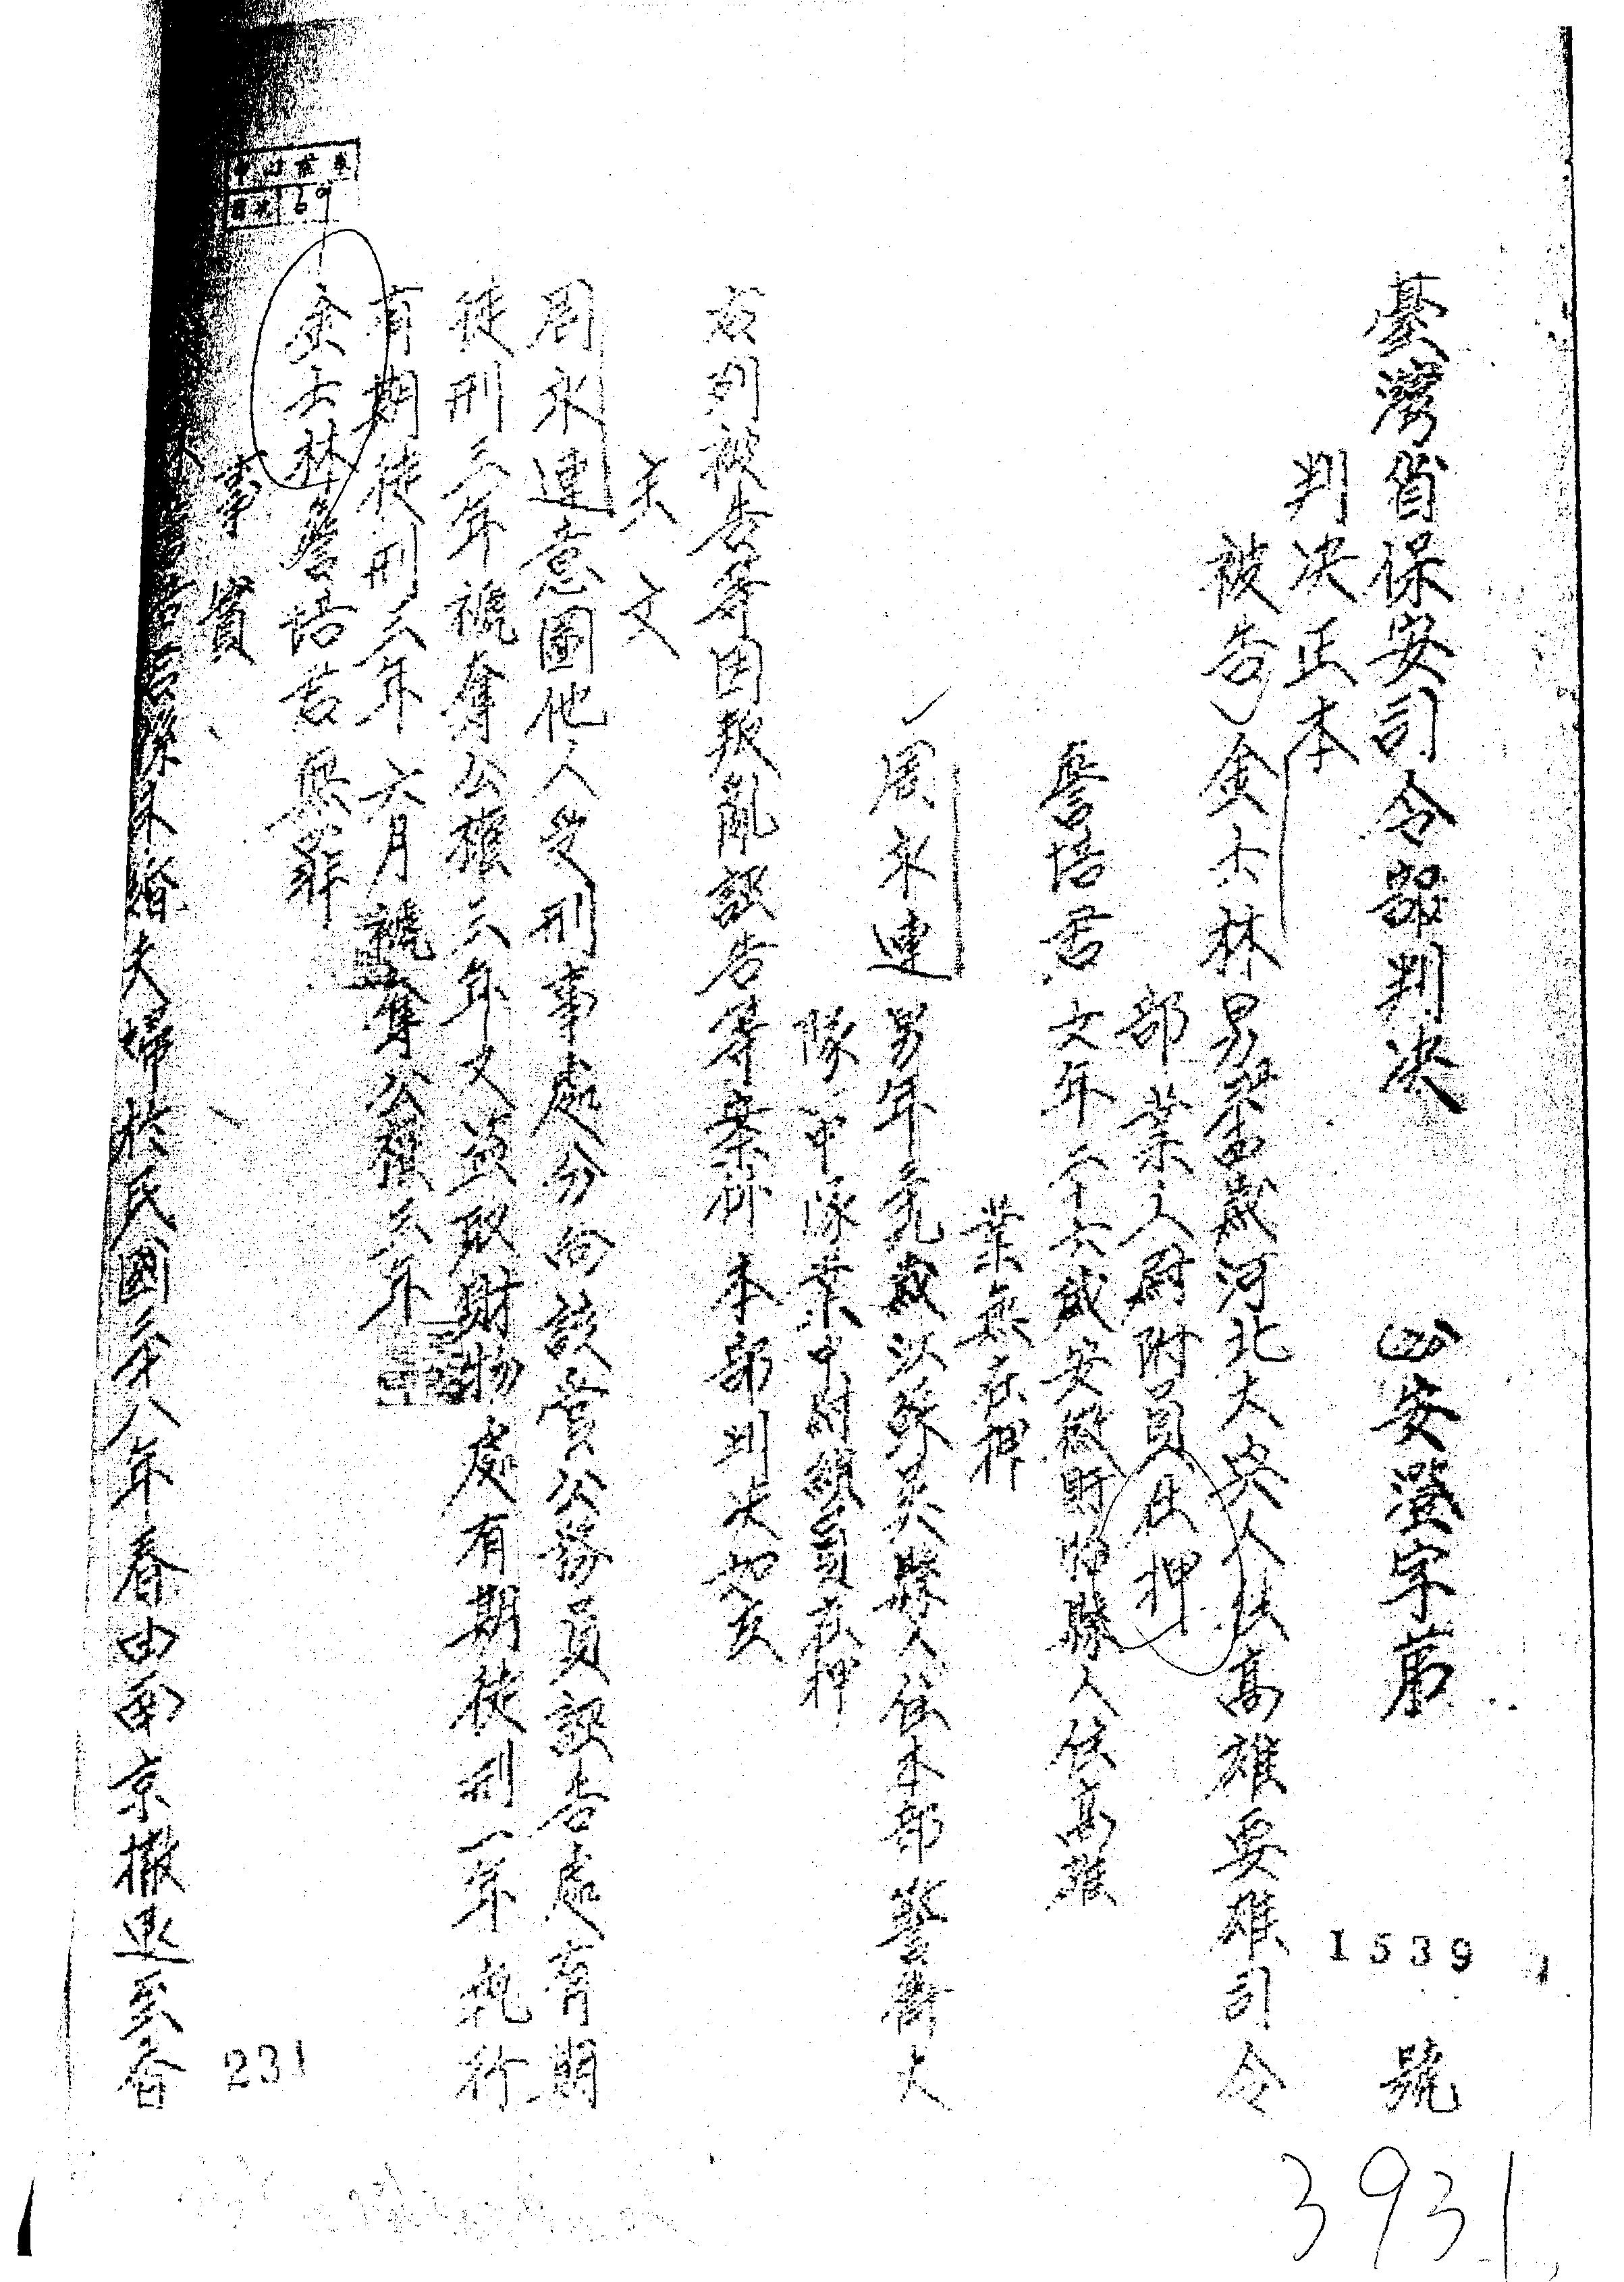 臺灣省保安司令部判決 (四〇)安澄字第1539號
判決正本
被告 金士林 男 年 歲河北大興人住高雄要塞司令
部業上尉附員在押
詹培君 女年二十六歲安徽盱眙縣人住高雄
業無在押
周永連 男年 歲江蘇吳縣人住本部警衛大
隊 中隊業中尉 員在押
右列被告等因叛亂誣告等案件本部判決如左
主文
周永連意圖他人受刑事處分向該管公務員誣告處有期
徒刑三年褫奪公權三年又盜取財物處有期徒刑一年執行
有期徒刑三年六月褫奪公權三年
金士林詹培君無罪
事實
君係未婚夫婦於民國三十八年春由南京撤退至香
231
3931
69